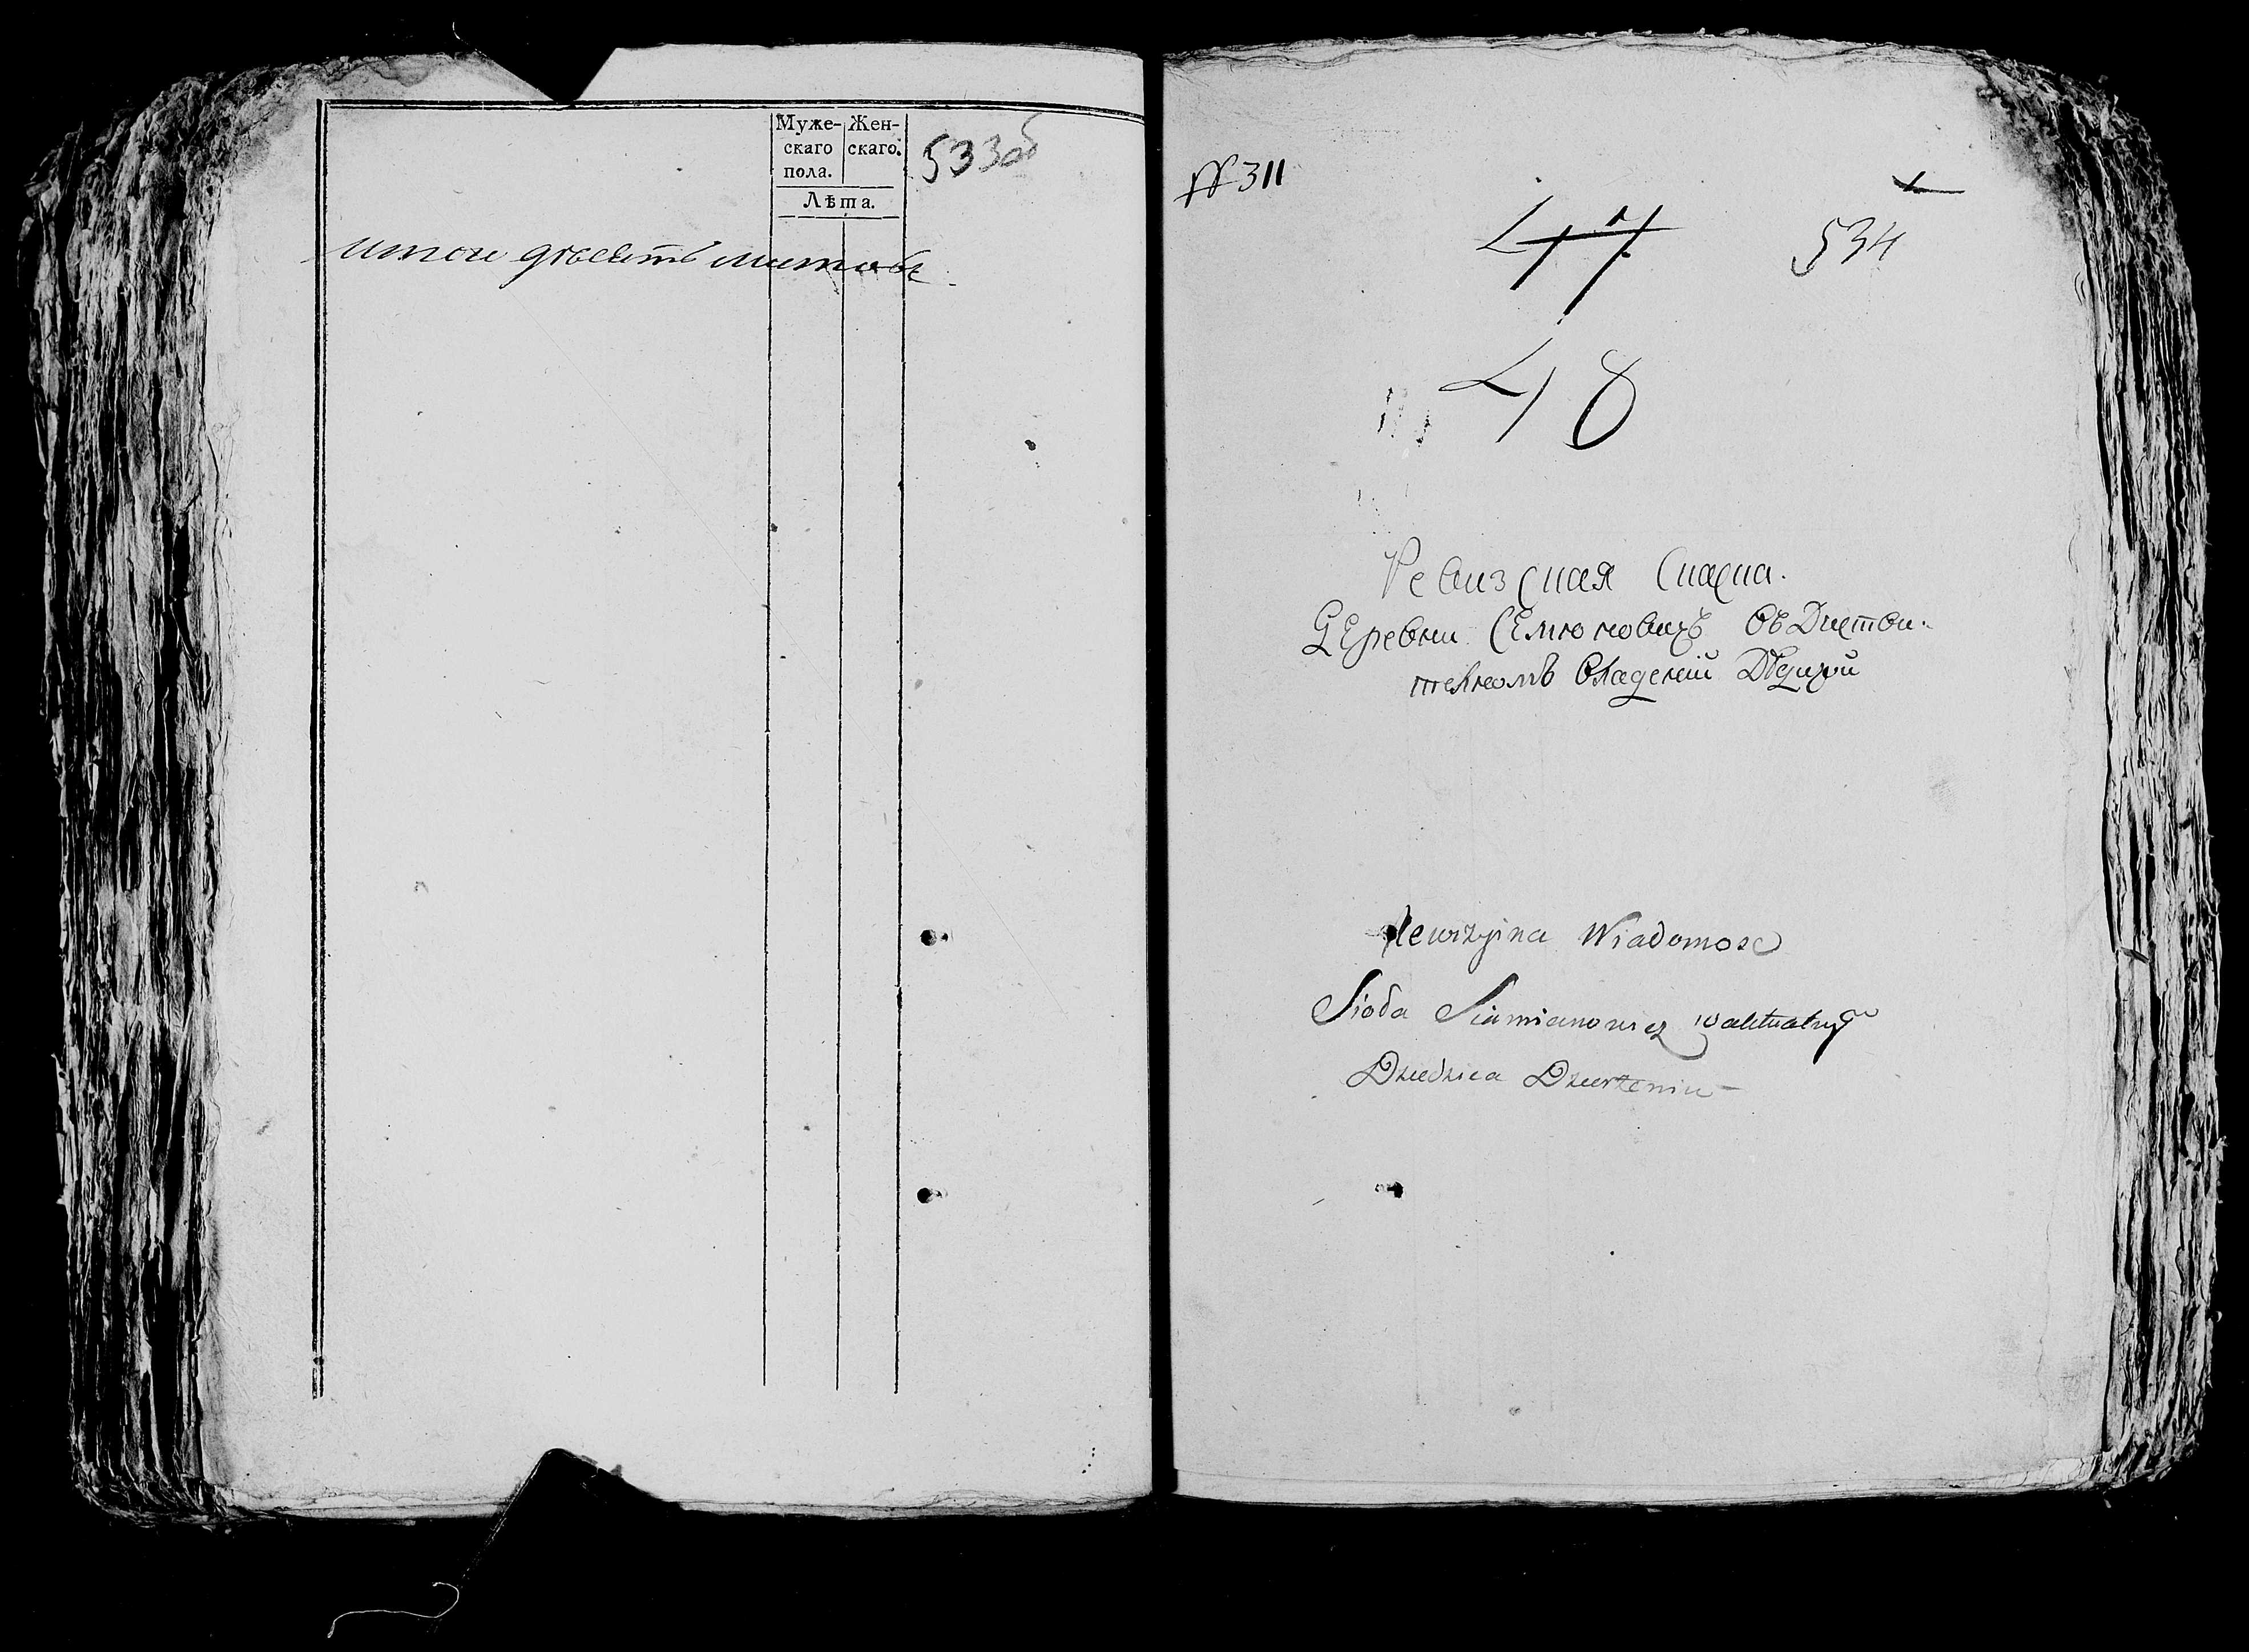 Муже- Жен-
скаго скаго.
пола.
Лѣта.
533об
итого девять листовъ
№ 311
47
534
48
Ревизская Сказка.
Деревни Семюновичъ въ Дистви-
телномъ Владении
Rewizyina Wiadomosc
Sioła Siemianowicz w aktualnym
Dziedzica Dzierżeniu